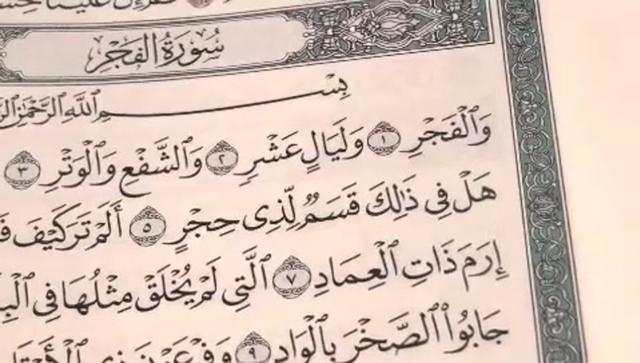 سُورَةُ الْفَجْرِ
بِسْمِ اللَّهِ الرَّحْمَٰنِ
وَالْفَجْرِ ١ وَلَيَالٍ عَشْرٍ ٢ وَالشَّفْعِ وَالْوَتْرِ ٣
هَلْ فِي ذَٰلِكَ قَسَمٌ لِّذِي حِجْرٍ ٥ أَلَمْ تَرَ كَيْفَ
إِرَمَ ذَاتِ الْعِمَادِ ٧ الَّتِي لَمْ يُخْلَقْ مِثْلُهَا فِي
جَابُوا الصَّخْرَ بِالْوَادِ ٩ وَفِرْعَوْنَ ذِي